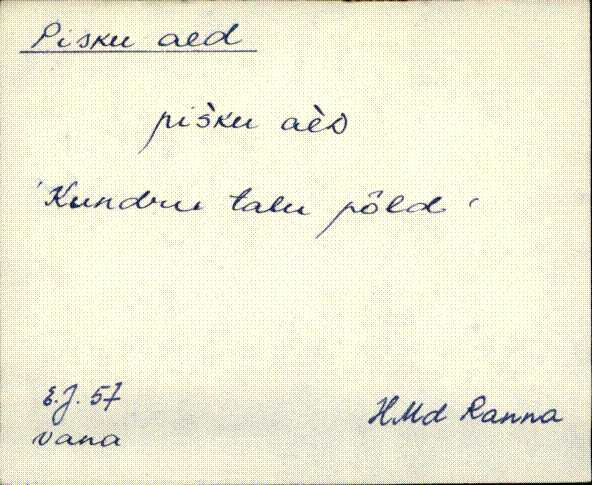 Pisku aed
pišku aèD
'Kundru talu põld'
E.J. 57
vana
HMd Ranna